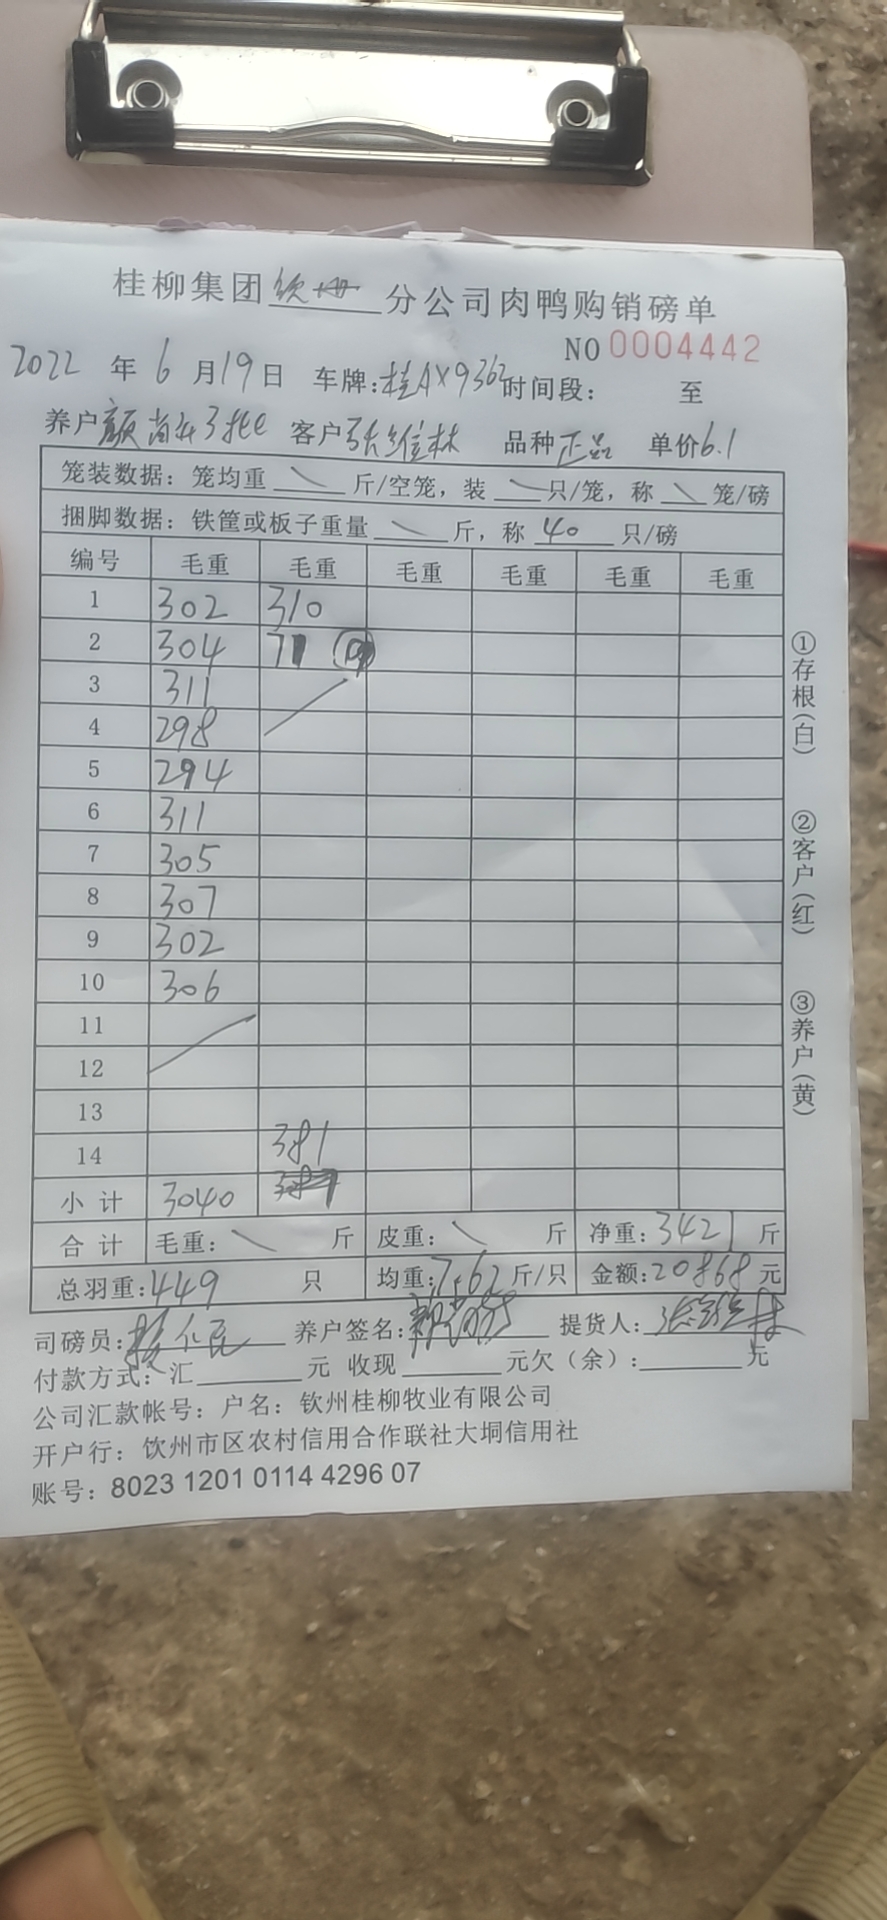 桂柳集团 钦州 分公司肉鸭购销磅单
NO 0004442
2022 年 6 月 19 日 车牌:桂AX9362 时间段: 至
养户 颜 3批 客户 张维林 品种 正品 单价 6.1
笼装数据: 笼均重 斤/空笼, 装 只/笼, 称 笼/磅
捆脚数据: 铁筐或板子重量 斤, 称 40 只/磅
编号 毛重 毛重 毛重 毛重 毛重 毛重
1 302 310
2 304 71
3 311
4 298
5 294
6 311
7 305
8 307
9 302
10 306
11
12
13
14 381
小计 3040
合计 毛重: 斤 皮重: 斤 净重: 3421 斤
总羽重: 449 只 均重: 7.62 斤/只 金额: 20868 元
司磅员: 养户签名: 提货人: 张维林
付款方式: 汇 元 收现 元欠(余): 元
公司汇款帐号: 户名: 钦州桂柳牧业有限公司
开户行: 钦州市区农村信用合作联社大垌信用社
账号: 8023 1201 0114 4296 07
①存根(白)
②客户(红)
③养户(黄)